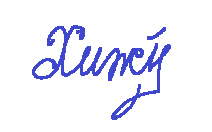 Хижу